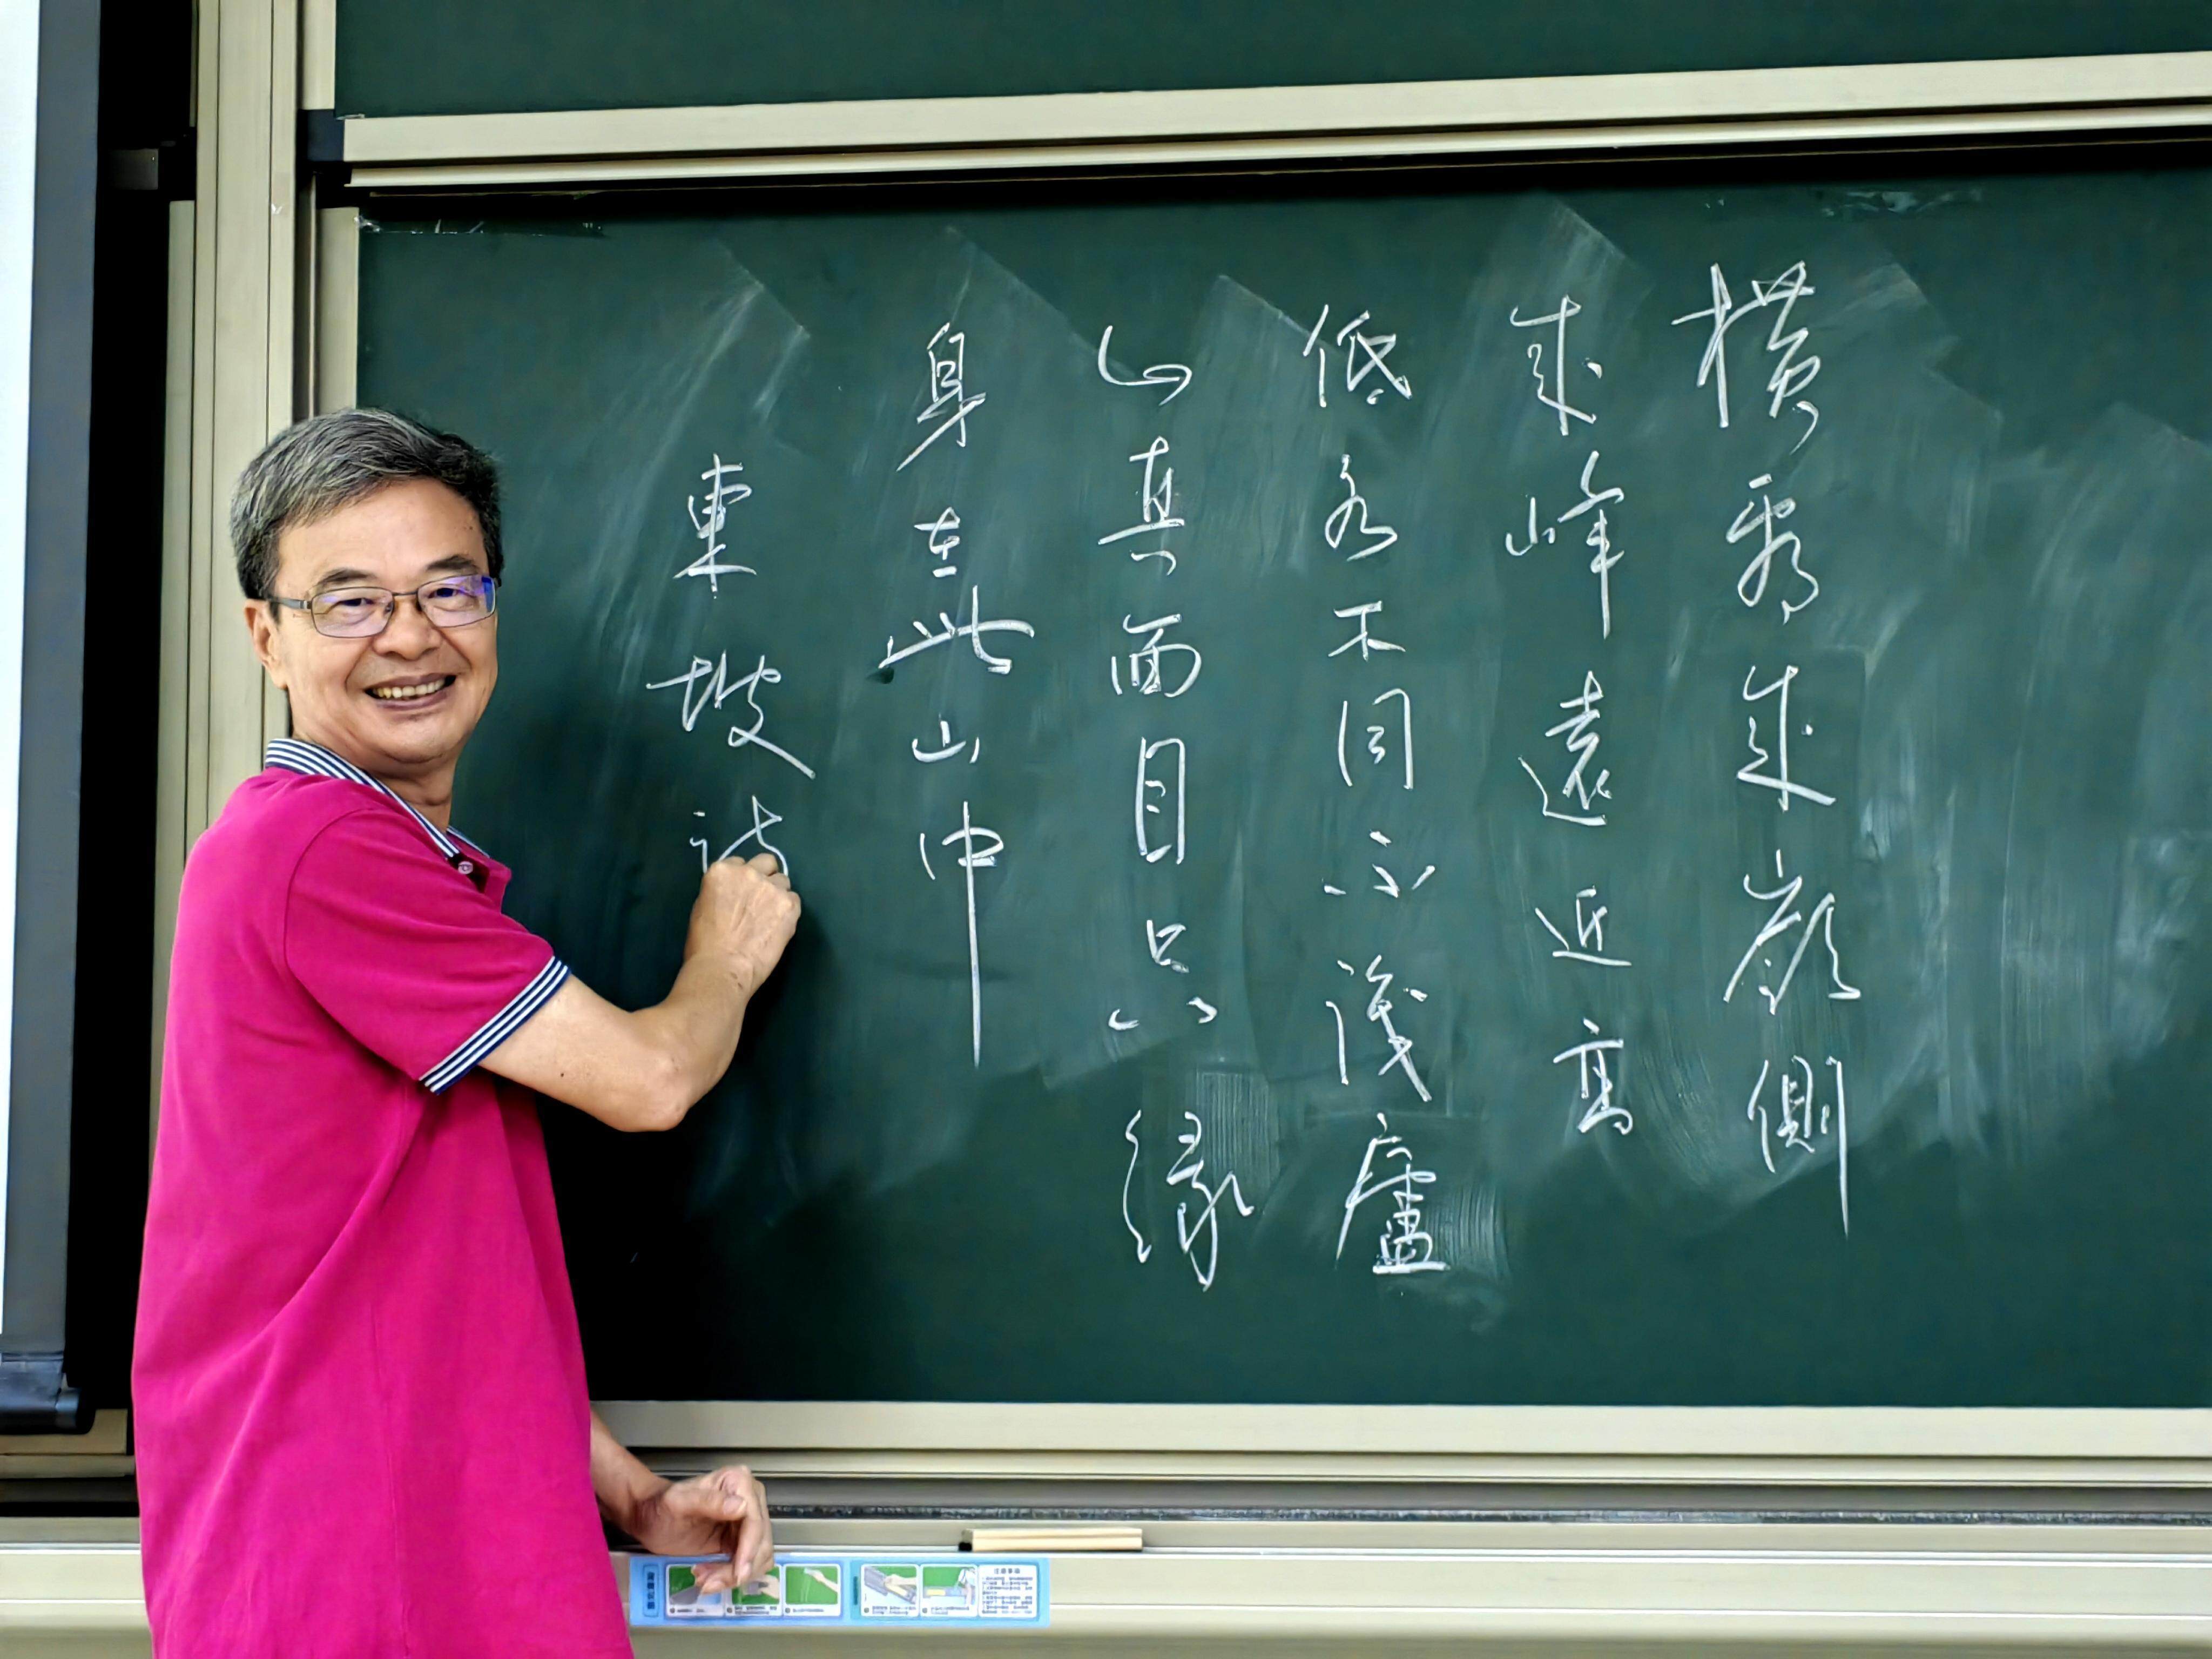 橫看成嶺側
成峰遠近高
低各不同不識廬
山真面目只緣
身在此山中
東坡詩